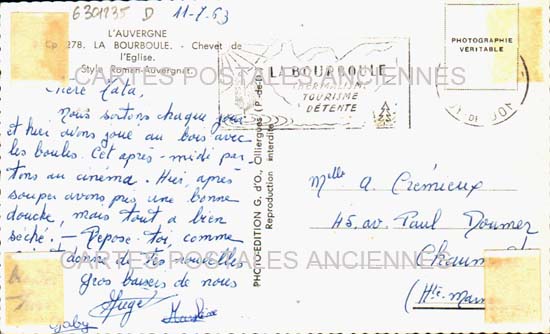 6301235 D 11-7-63
L'AUVERGNE
Cp 278. LA BOURBOULE. - Chevet de
l'Eglise.
Style Roman-Auvergnat.
Chère Tata,
Nous sortons chaque jour
et hier avons joué au bois avec
les boules. Cet après-midi par-
tons au cinéma. Hier, après
souper avons pris une bonne
douche, mais tout a bien
séché. - Repose-toi, comme
donne de tes nouvelles
Gros baisers de nous
Gaby
PHOTO-EDITION G. d'O., Cilliergues (P.-de-D.)
Reproduction interdite
LA BOURBOULE
THERMALISME
TOURISME
DÉTENTE
PHOTOGRAPHIE
VÉRITABLE
PUY DE DOME
Melle A. Crémieux
45, av. Paul Doumer
Chaum
(Hte Marn
CARTES POSTALES ANCIENNES
CARTES POSTALES ANCIENNES